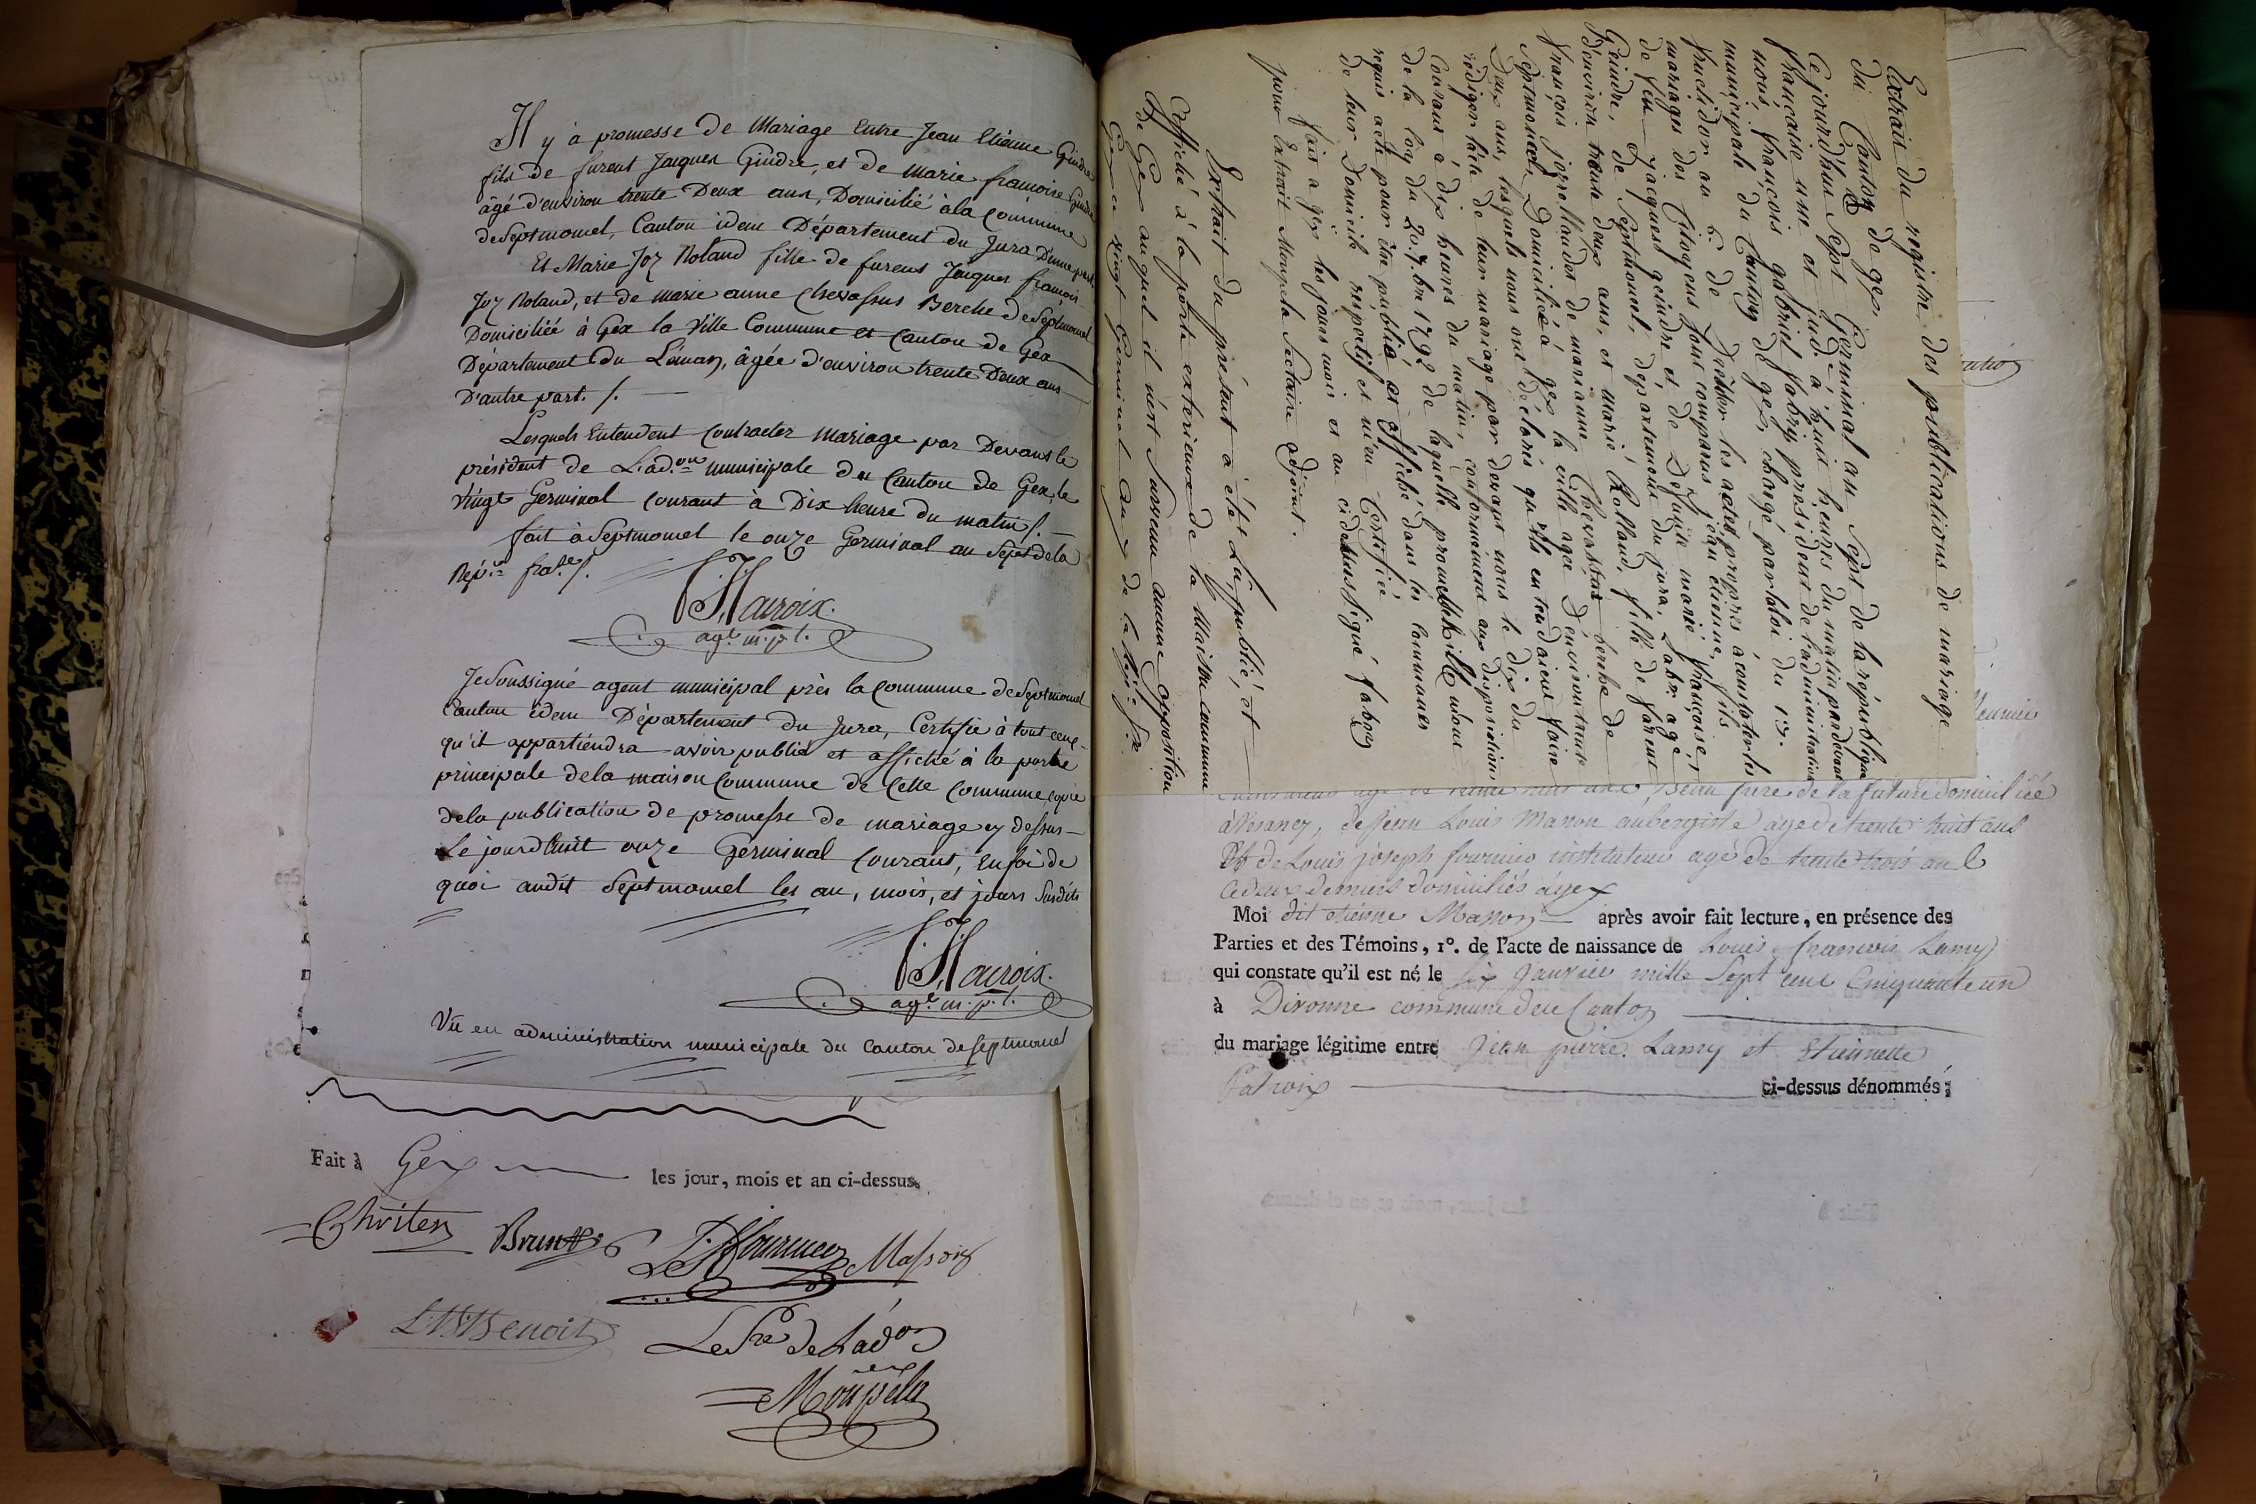 Il y à promesse de Mariage Entre Jean Etienne Gindre
fils de furent Jacques Gindre, et de Marie françoise Gindre
âgé d'environ trente Deux ans, Domicilié à la Commune
de Septmomel, Canton idem Département du Jura D'une part
Et Marie Joz Roland fille de furent Jacques françois
Joz Roland, et de Marie anne Chevassus Berche de Septmomel
Domiciliée à Gex la Ville Commune et Canton de Gex
Département du Léman, âgée d'environ trente Deux ans
D'autre part ./. —
Lesquels Entendent Contracter Mariage par Devant le
président de L'ad.on municipale du Canton de Gex, le
Vingt Germinal Courant à Dix heure du matin /. —
fait à Septmomel le onze Germinal an Sept de la
Rép.e fra.se /.
Lacroix.
ag.t m.p.l.
Je Soussigné agent municipal près la Commune de Septmomel
Canton idem Département du Jura, Certifie à tout ceux
qu'il appartiendra avoir publié et affiché à la porte
principale de la maison Commune de Cette Commune, copie
de la publication de promesse de mariage cy dessus —
Le jourdhuit onze Germinal Courant, En foi de
quoi audit Septmomel les an, mois, et jours Susdits
Lacroix.
ag.t m.p.l.
Vu en administration municipale du Canton de Septmomel
Fait à Gex les jour, mois et an ci-dessus.
Chriten Brunet Fournier Masson
Benoit Le Sre de L'adon
Moupéla
Extrait du registre des publications de mariage
du Canton de gex,
Ce jourd'hui Sept Germinal an Sept de la république
française une et ind. à huit heures du matin par devant
nous françois gabriel fabry président de l'administration
municipale du Canton de gex, chargé par la loi du 13.
fructidor an 6 de Dresser les actes propres à constater les
mariages des Citoyens Sont comparus jean étienne, fils
de feu jacques geindre et de Defunte marie françoise
Geindre, de Septmoncel, département du jura, Labr. agé
d'environ trente deux ans, et marie Rolland, fille de furent
françois joz rolland et de marianne Chevassus berche de
Septmoncel, Domiciliée à gex la ville agée d'environ trente
Deux ans, lesquels nous ont déclaré qu'ils entendaient faire
rédiger l'acte de leur mariage par devant nous le dix du
Courant à dix heures du matin, conformément aux dispositions
de la loy du 20. 7.bre 1792 de laquelle promesse ils nous
requis acte pour être publié et affiché dans les communes
de leur Domicile respectif et m'en Certifié
fait a gex les jours mois et an ci dessus Signé fabry
pour Extrait Moupela Secrétaire adjoint.
Extrait du présent a été Lu, publié, et
affiché à la porte exterieure de la Maison commune
de Gex auquel il n'est survenu aucune opposition
Gex ce vingt Germinal an 7 de la rep. f.se
à Vesaney, de jean Louis Manon aubergiste agé de trente huit ans
Et de Louis joseph fournier instituteur agé de trente trois ans
ces deux derniers domiciliés à gex
Moi dit etienne Masson — après avoir fait lecture, en présence des
Parties et des Témoins, 1°. de l'acte de naissance de Louis françois Lamy
qui constate qu'il est né le six Janvier mille Sept cent Cinquante un
à Divonne commune de ce Canton
du mariage légitime entre Jean pierre Lamy et Etiennette
Patroix ci-dessus dénommés;